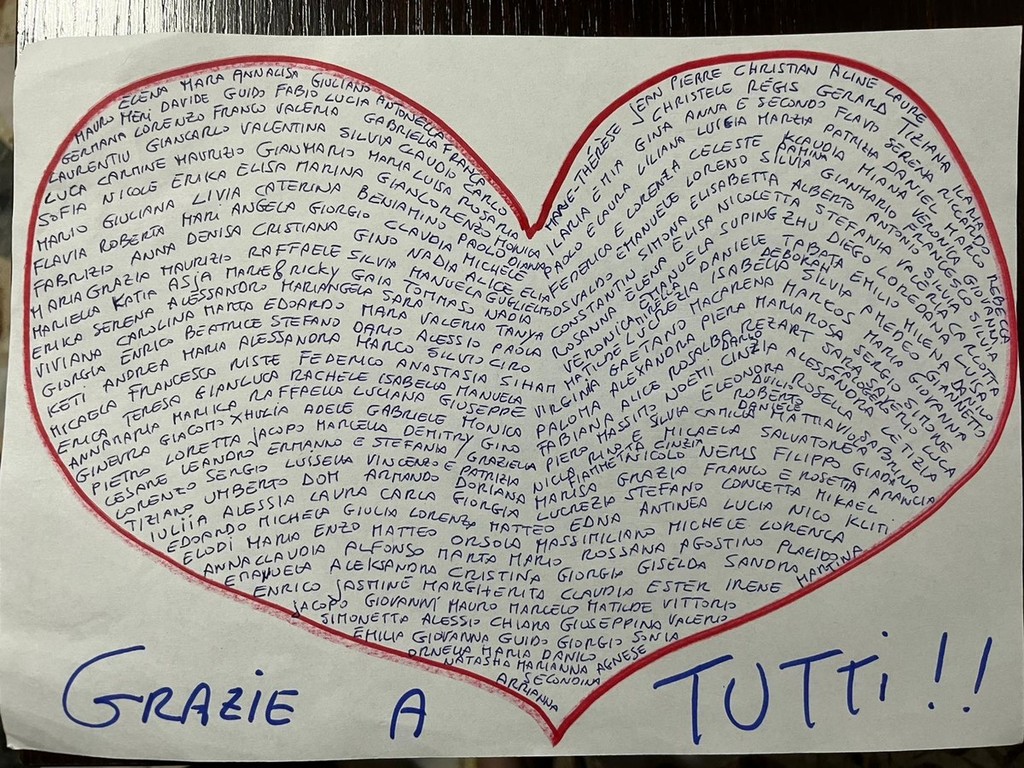 ELENA MARA ANNALISA GIULIANO
MAURO MERI DAVIDE GUIDO FABIO LUCIA ANTONELLA
GERMANA LORENZO FRANCO VALERIA GABRIELLA FRANCA
LAURENTIU GIANCARLO VALENTINA SILVIA CLAUDIO CARLO
LUCA CARMINE MAURIZIO GIANMARIO MARIALUISA ROSARIA
SOFIA NICOLE ERIKA ELISA MARINA GIANLORENZO MONICA
MARIO GIULIANA LIVIA CATERINA BENIAMINO PAOLO DIANA
FLAVIA ROBERTA MARIANGELA GIORGIO CLAUDIA MICHELE
FABRIZIO ANNA DENISA CRISTIANA GINO NADIA ALICE ELIA
MARIA GRAZIA MAURIZIO RAFFAELE SILVIA MANUELA GUGLIELMO
MARIELLA KATIA ASJA MARIE & RICKY GAIA TOMMASO NADIA
ERIKA SERENA ALESSANDRO MARIANGELA SARA VALERIA TANYA
VIVIANA CAROLINA MARTA EDOARDO MARA ALESSIO PAOLA
GIORGIA ENRICO BEATRICE STEFANO DARIO SILVIO CIRO
KETI ANDREA MARIA ALESSANDRA MARCO ANASTASIA SIHAM
MICAELA FRANCESCA RISTE FEDERICO MANUELA
ERICA TERESA GIANLUCA RACHELE ISABELLA GIUSEPPE
ANNAMARIA MARIKA RAFFAELLA LUCIANA MONICA
GINEVRA GIACOMO XHULIA ADELE GABRIELE GINO
PIETRO LORETTA JACOPO MARCELLA DEMITRY GRAZIELLA
CESARE LEANDRO ERMANNO E STEFANIA PATRIZIA
LORENZO SERGIO LUISELLA VINCENZO E DORIANA
TIZIANO UMBERTO DOM ARMANDO GIORGIA
JEAN PIERRE CHRISTIAN ALINE LAURE
MARIE-THÉRÈSE CHRISTELE RÉGIS GERARD TIZIANA
ILARIA EMIA GINA ANNA E SECONDO FLAVIO SERENA
PAOLO E LAURA LILIANA LUCIA MARZIA PATRIZIA DANIELE
FEDERICA E LORENZA CELESTE KLAUDIA
OSVALDO EMANUELE LORENO SILVIA
CONSTANTIN SIMONA ELISABETTA ALBERTO ANTONIO
ROSANNA ELENA ELISA NICOLETTA STEFANIA
EMANUELA SUPING ZHU DIEGO
MATILDE LUCREZIA DANIELE TABATA EMILIO
VIRGINIA GAETANO MACARENA ISABELLA SILVIA
PALOMA ALEXANDRA PIERA MARCOS AMEDEO
FABIANA ALICE ROSALBA REZART MARIAROSA SERGIO
PIERO MASSIMO NOEMI CINZIA ALESSANDRO
SILVIA E ELEONORA ROSELLA LETIZIA
CAMILLA ROBERTO MATTIA BRUNA
NICOLO NERIS FILIPPO GIADA
MICAELA SALVATORE ARANCIA
IULIIA ALESSIA LAURA CARLA LUCREZIA MARISA GRAZIA FRANCO E ROSETTA
EDOARDO MICHELA GIULIA LORENZA MATTEO EDNA STEFANO CONCETTA MIKAEL
ELODI MARIA ENZO MATTEO ORSOLA MASSIMILIANO ANTINEA LUCIA NICO KLITI
ANNACLAUDIA ALFONSO MARTA MARIO ROSSANA MICHELE LORENCA
EMANUELA ALEKSANDRA CRISTINA GIORGIA GISELDA AGOSTINO PLACIDO
ENRICO JASMINE MARGHERITA CLAUDIA ESTER IRENE SANDRA MARTINA
JACOPO GIOVANNI MAURO MARCELO MATILDE VITTORIO
SIMONETTA ALESSIO CHIARA GIUSEPPINA VALERIO
EMILIA GIOVANNA GUIDO GIORGIO SONIA
ORNELLA MARIA DANILO
NATASHA MARIANNA AGNESE
SECONDINA
ARRIANNA
GRAZIE A TUTTI!!